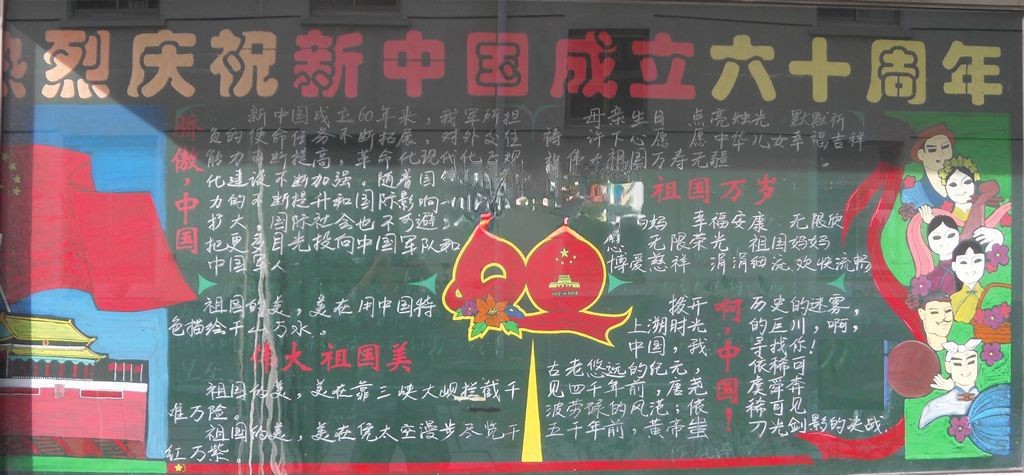 热烈庆祝新中国成立六十周年
骄傲,中国
新中国成立60年来,我军所担
负的使命任务不断拓展,对外交往
能力不断提高,革命化现代化正规
化建设不断加强。随着国
力的不断提升和国际影响
扩大,国际社会也不可避
把更多目光投向中国军队和
中国军人
祖国的美,美在用中国特
色描绘千山万水。
伟大祖国美
祖国的美,美在靠三峡大坝拦截千
难万险。
祖国的美,美在凭太空漫步尽览千
红万紫。
60
母亲生日 点亮烛光 默默祈
祷 许下心愿 愿中华儿女幸福吉祥
祈伟大祖国万寿无疆
祖国万岁
妈妈 幸福安康 无限欣
慰 无限荣光 祖国妈妈
博爱慈祥 涓涓细流 欢快流畅
啊,中国!
拨开 历史的迷雾,
上溯时光 的巨川,啊,
中国,我 寻找你!
古老悠远的纪元, 依稀可
见四千年前,唐尧 虞舜奔
波劳碌的风范;依 稀可见
五千年前,黄帝蚩 刀光剑影的决战